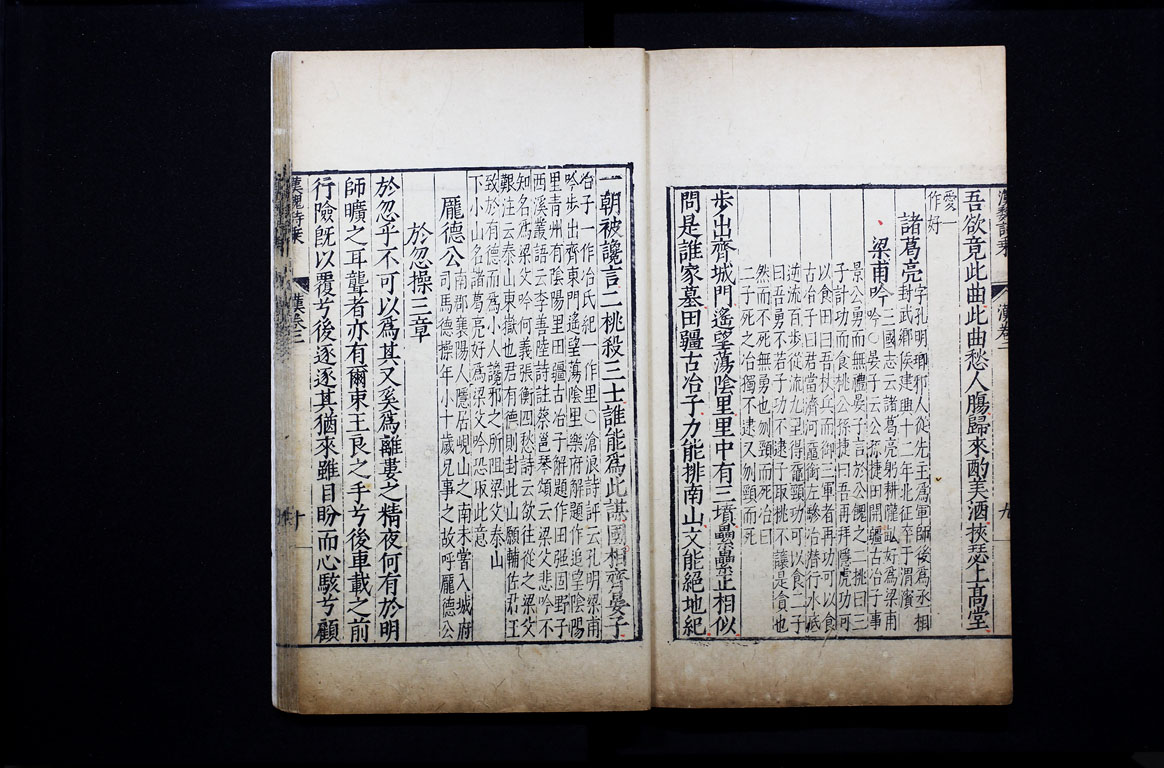 吾欲竟此曲此曲愁人腸歸來酌美酒挾瑟上高堂
愛一
作好
諸葛亮
字孔明瑯邪人從先主爲軍師後爲丞相
封武鄉侯建興十二年北征卒于渭濱
梁甫吟
三國志云諸葛亮躬耕隴畝好爲梁甫
吟○晏子云公孫捷田開疆古冶子事
景公勇而無禮晏子言於公餽之二桃曰三
子計功而食桃公孫捷曰吾再拜隱虎功可
以食田曰吾杖兵而御三軍者再功可以食
古冶子曰君當濟河黿銜左驂冶潛行水底
逆流百步從流九里得黿頸功可以食二子
曰吾勇不若子功不逮子取桃不讓是貪也
然而不死無勇也刎頸而死冶曰
二子死之冶獨不逮又刎頸而死
步出齊城門遙望蕩陰里里中有三墳纍纍正相似
問是誰家墓田疆古冶子力能排南山文能絕地紀
一朝被讒言二桃殺三士誰能爲此謀國相齊晏子
冶子一作冶氏紀一作里○滄浪詩評云孔明梁甫
吟步出齊東門遙望蕩陰里樂府解題作追望陰陽
里青州有陰陽里田疆古冶子解題作田强固野子
西溪叢語云李善陸詩註蔡邕琴頌云梁父悲吟不
知名爲梁父吟何義張衡四愁詩云欲往從之梁父
艱注云泰山東嶽也君有德則封此山願輔佐君王
致於有德而爲小人讒邪之所阻梁父泰山
下小山名諸葛亮好爲梁父吟恐取此意
龐德公
南郡襄陽人隱居峴山之南未嘗入城府
司馬德操年小十歲兄事之故呼龐德公
於忽操三章
於忽乎不可以爲其又奚爲離婁之精夜何有於明
師曠之耳聾者亦有爾東王良之手兮後車載之前
行險旣以覆兮後逐逐其猶來雖目盼而心駭兮顧
漢魏詩乘
漢卷三
十